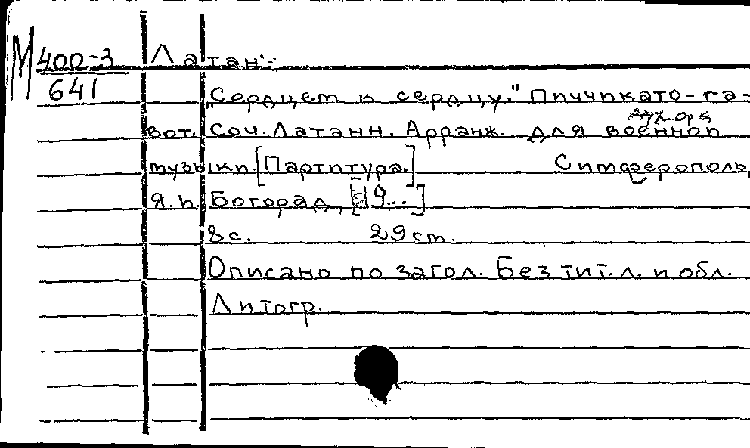 М 400-3 Латан
641
„Сердцем к сердцу." Пиччикато-га-
вот. Соч. Латанн. Арранж. для военной
музыки [Партитура.] Симферополь,
Я.И. Богорад, [19...]
8 с. 29 см.
Описано по загол. Без тит. л. и обл.
Литогр.